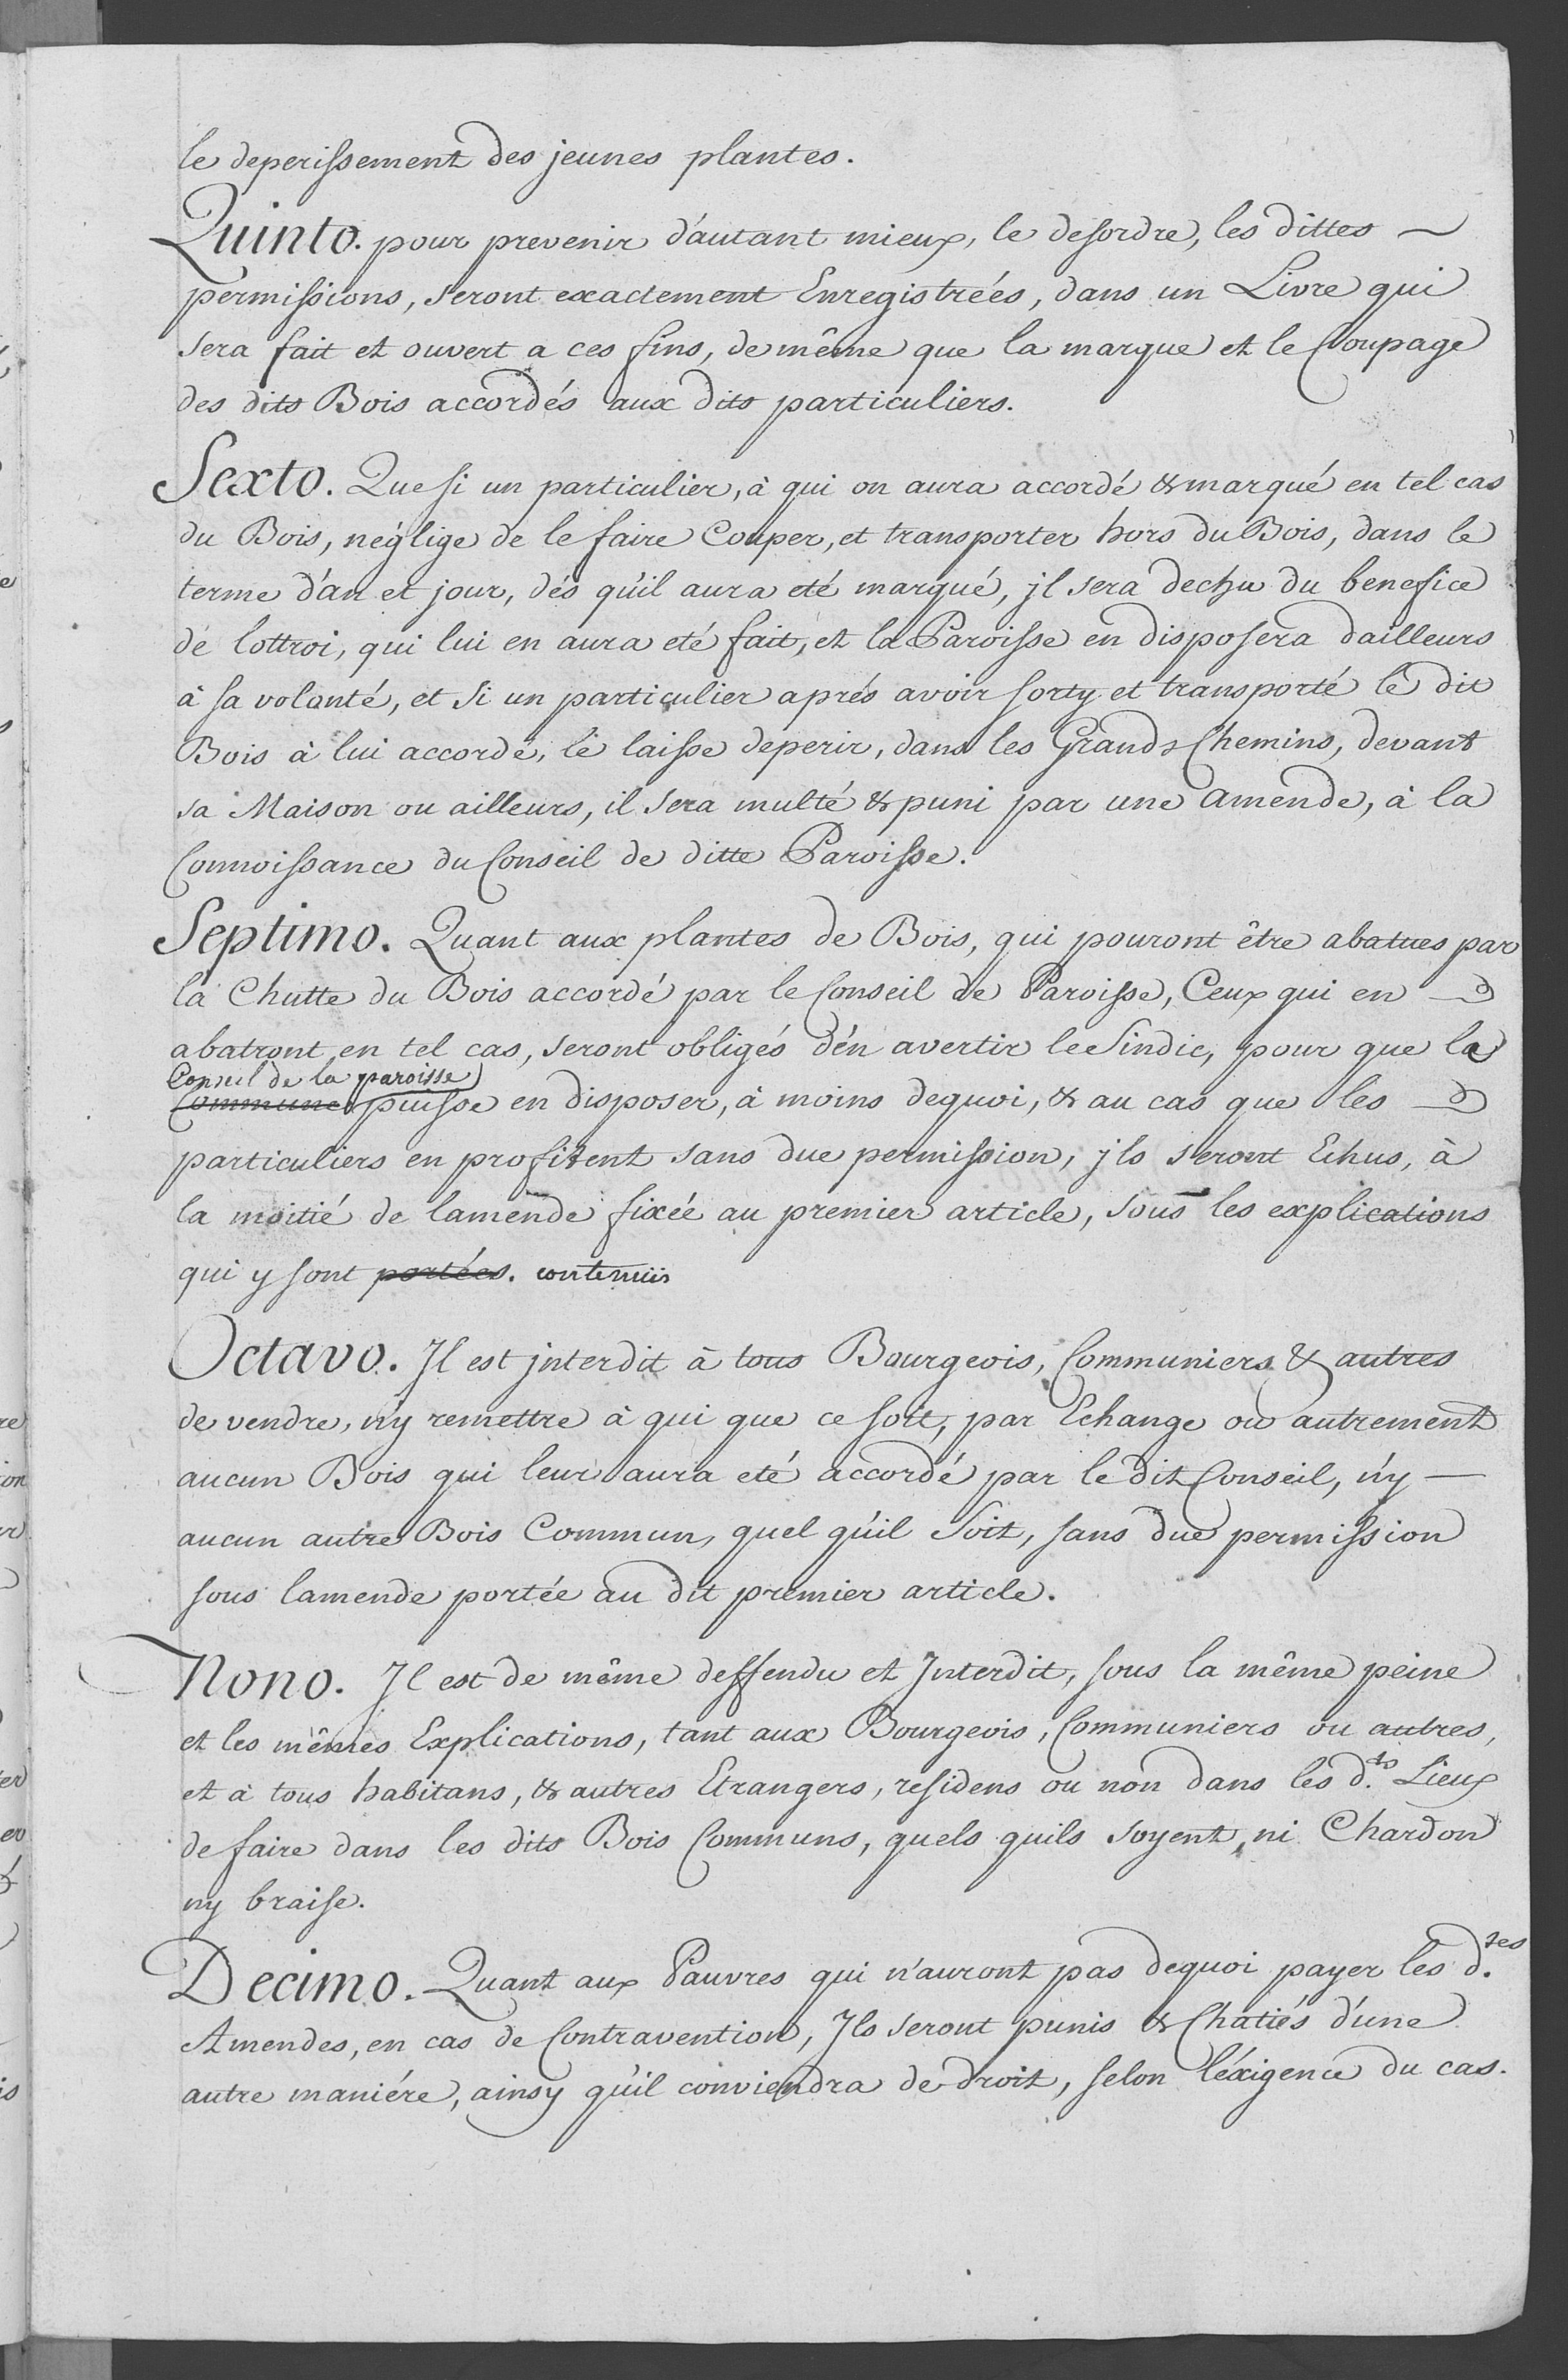 le deperissement des jeunes plantes.
Quinto. pour prevenir d'autant mieux, le desordre, les dittes
permissions, seront exactement Enregistrées, dans un Livre qui
sera fait et ouvert a ces fins, de même que la marque et le Coupage
des dits Bois accordés aux dits particuliers.
Sexto. Que si un particulier, à qui on aura accordé & marqué en tel cas
du Bois, néglige de le faire Couper, et transporter hors du Bois, dans le
terme d'an et jour, dés qu'il aura eté marqué, jl sera dechu du benefice
de lottroi, qui lui en aura eté fait, et la Paroisse en disposera dailleurs
à sa volonté, et si un particulier aprés avoir sorty et transporté le dit
Bois à lui accordé, le laisse deperir, dans les Grands Chemins, devant
sa Maison ou ailleurs, il sera multé & puni par une amende, à la
Connoissance du Conseil de ditte Paroisse.
Septimo. Quant aux plantes de Bois, qui pouront être abatues par
la Chutte du Bois accordé par le Conseil de Paroisse, Ceux qui en
abatront en tel cas, seront obligés d'en avertir le Sindic, pour que le
Conseil de la paroisse
Commune puisse en disposer, à moins dequoi, & au cas que les
particuliers en profitent sans due permission, jls seront Echus, à
la moitié de lamende fixée au premier article, sous les explications
qui y sont portées. contenües
Octavo. Jl est jnterdit à tous Bourgeois, Communiers & autres
de vendre, n'y remettre à qui que ce soit, par Echange ou autrement
aucun Bois qui leur aura eté accordé par le dit Conseil, n'y
aucun autre Bois Commun, quel qu'il soit, sans due permission
sous lamende portée au dit premier article.
Nono. Jl est de même deffendu et Jnterdit, sous la même peine
et les mêmes Explications, tant aux Bourgeois, Communiers ou autres,
et à tous habitans, & autres Etrangers, residens ou non dans les d.ts Lieux
de faire dans les dits Bois Communs, quels quils soyent, ni Chardon
ny braise.
Decimo. Quant aux Pauvres qui n'auront pas dequoi payer les d.tes
Amendes, en cas de Contravention, Jls seront punis & Chatiés d'une
autre maniére, ainsy qu'il conviendra de droit, selon l'éxigence du cas.